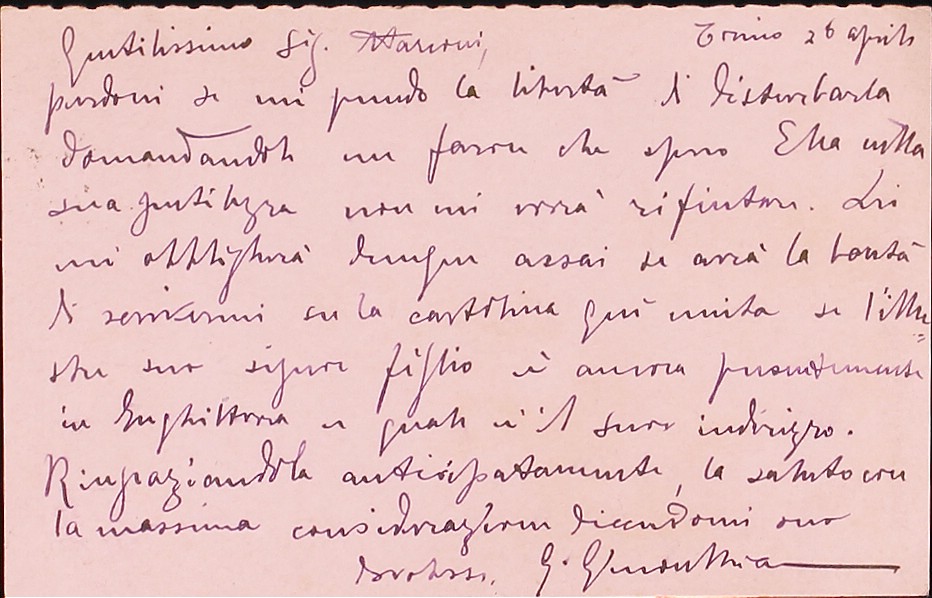 Gentilissimo Sig. Marconi, Torino 26 aprile
perdoni se mi prendo la libertà di disturbarla
domandandole un favore che spero Ella nella
sua gentilezza non mi vorrà rifiutare. Lei
mi obbligherà dunque assai se avrà la bontà
di scrivermi su la cartolina quì unita se l'illu=
stre suo signore figlio è ancora presentemente
in Inghilterra e quale è il suo indirizzo.
Ringraziandola anticipatamente, la saluto con
la massima considerazione dicendomi suo
devotiss. G.